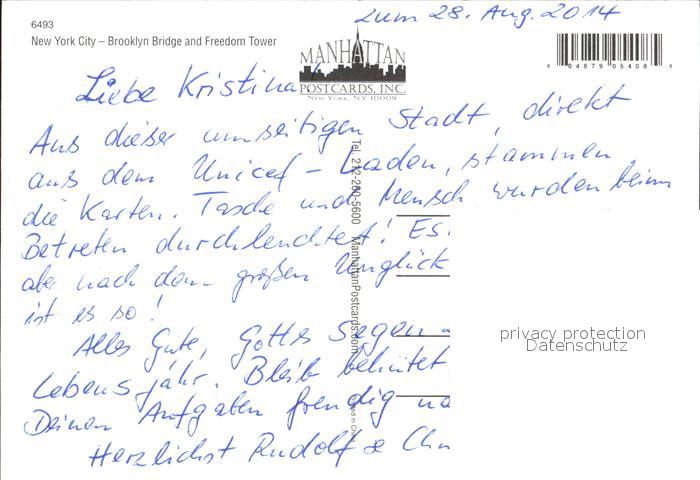 zum 28. Aug. 2014
6493
New York City – Brooklyn Bridge and Freedom Tower
MANHATTAN
POSTCARDS, INC.
NEW YORK, NY 10009
6 04879 05408 5
Liebe Kristina!
Aus dieser umseitigen Stadt, direkt
aus dem Unicef-Laden, stammen
die Karten. Tasche und Mensch wurden beim
Betreten durchleuchtet! Es
aber nach dem großen Unglück
ist es so!
Alles Gute, Gottes Segen
Lebensjahr. Bleib behütet
Deinen Aufgaben freudig
Herzlichst Rudolf &
Tel. 212-260-5600 ManhattanPostcards.com
Printed in China
privacy protection
Datenschutz